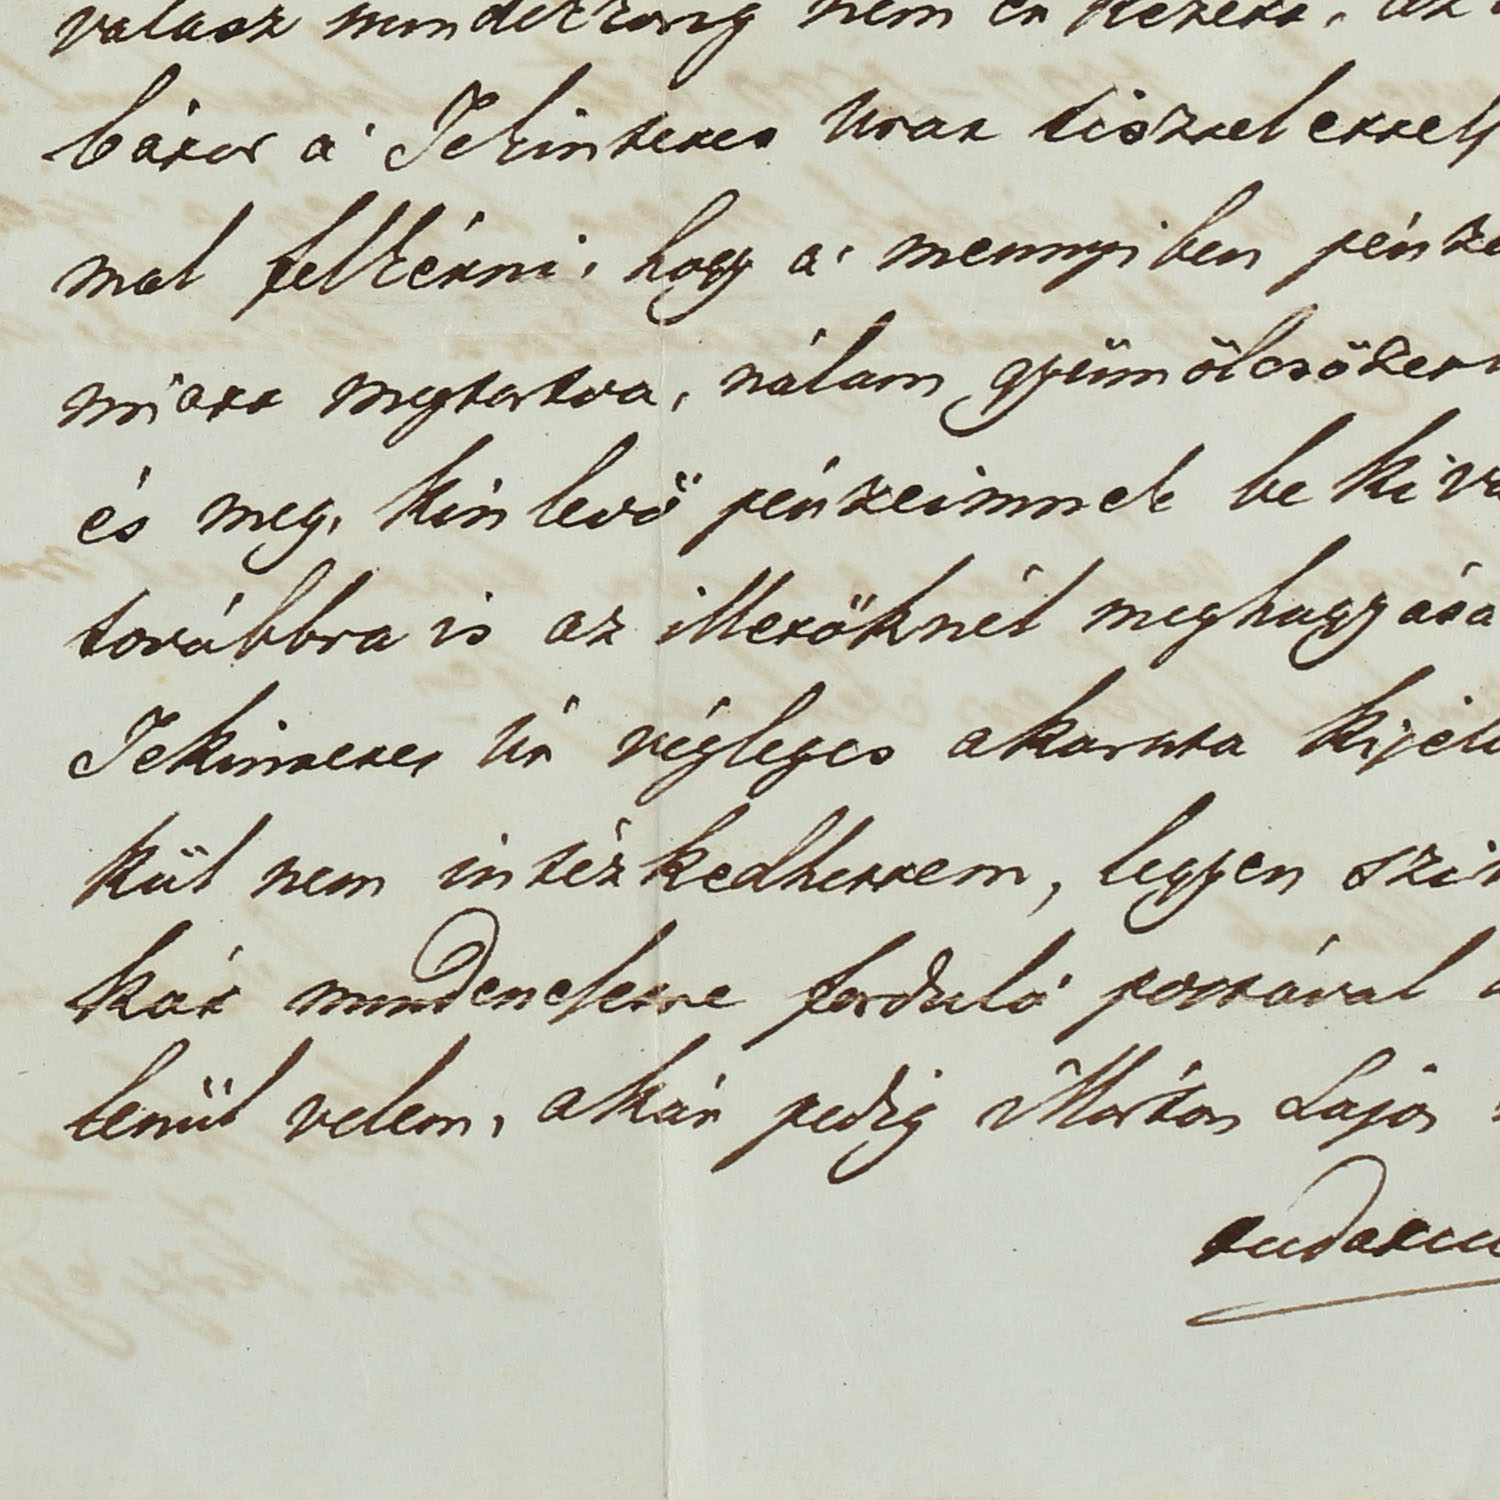 válasz mindekkorig nem érkezett, az
bátor a' Tekintetes Urat tisztelettel
mal felkérni, hogy a' mennyiben pénze
miatt megtartva, nálam gyümölcsöztett
és meg, künlevő pénzeimnek be ki
továbbra is az illetőknél meghagyása
Tekintetes Úr végleges akarata kijel
kül nem intézkedhettem, legyen szi
kár mindenesetre forduló postával
lenül velem, akár pedig Márton Lajos
tudatni